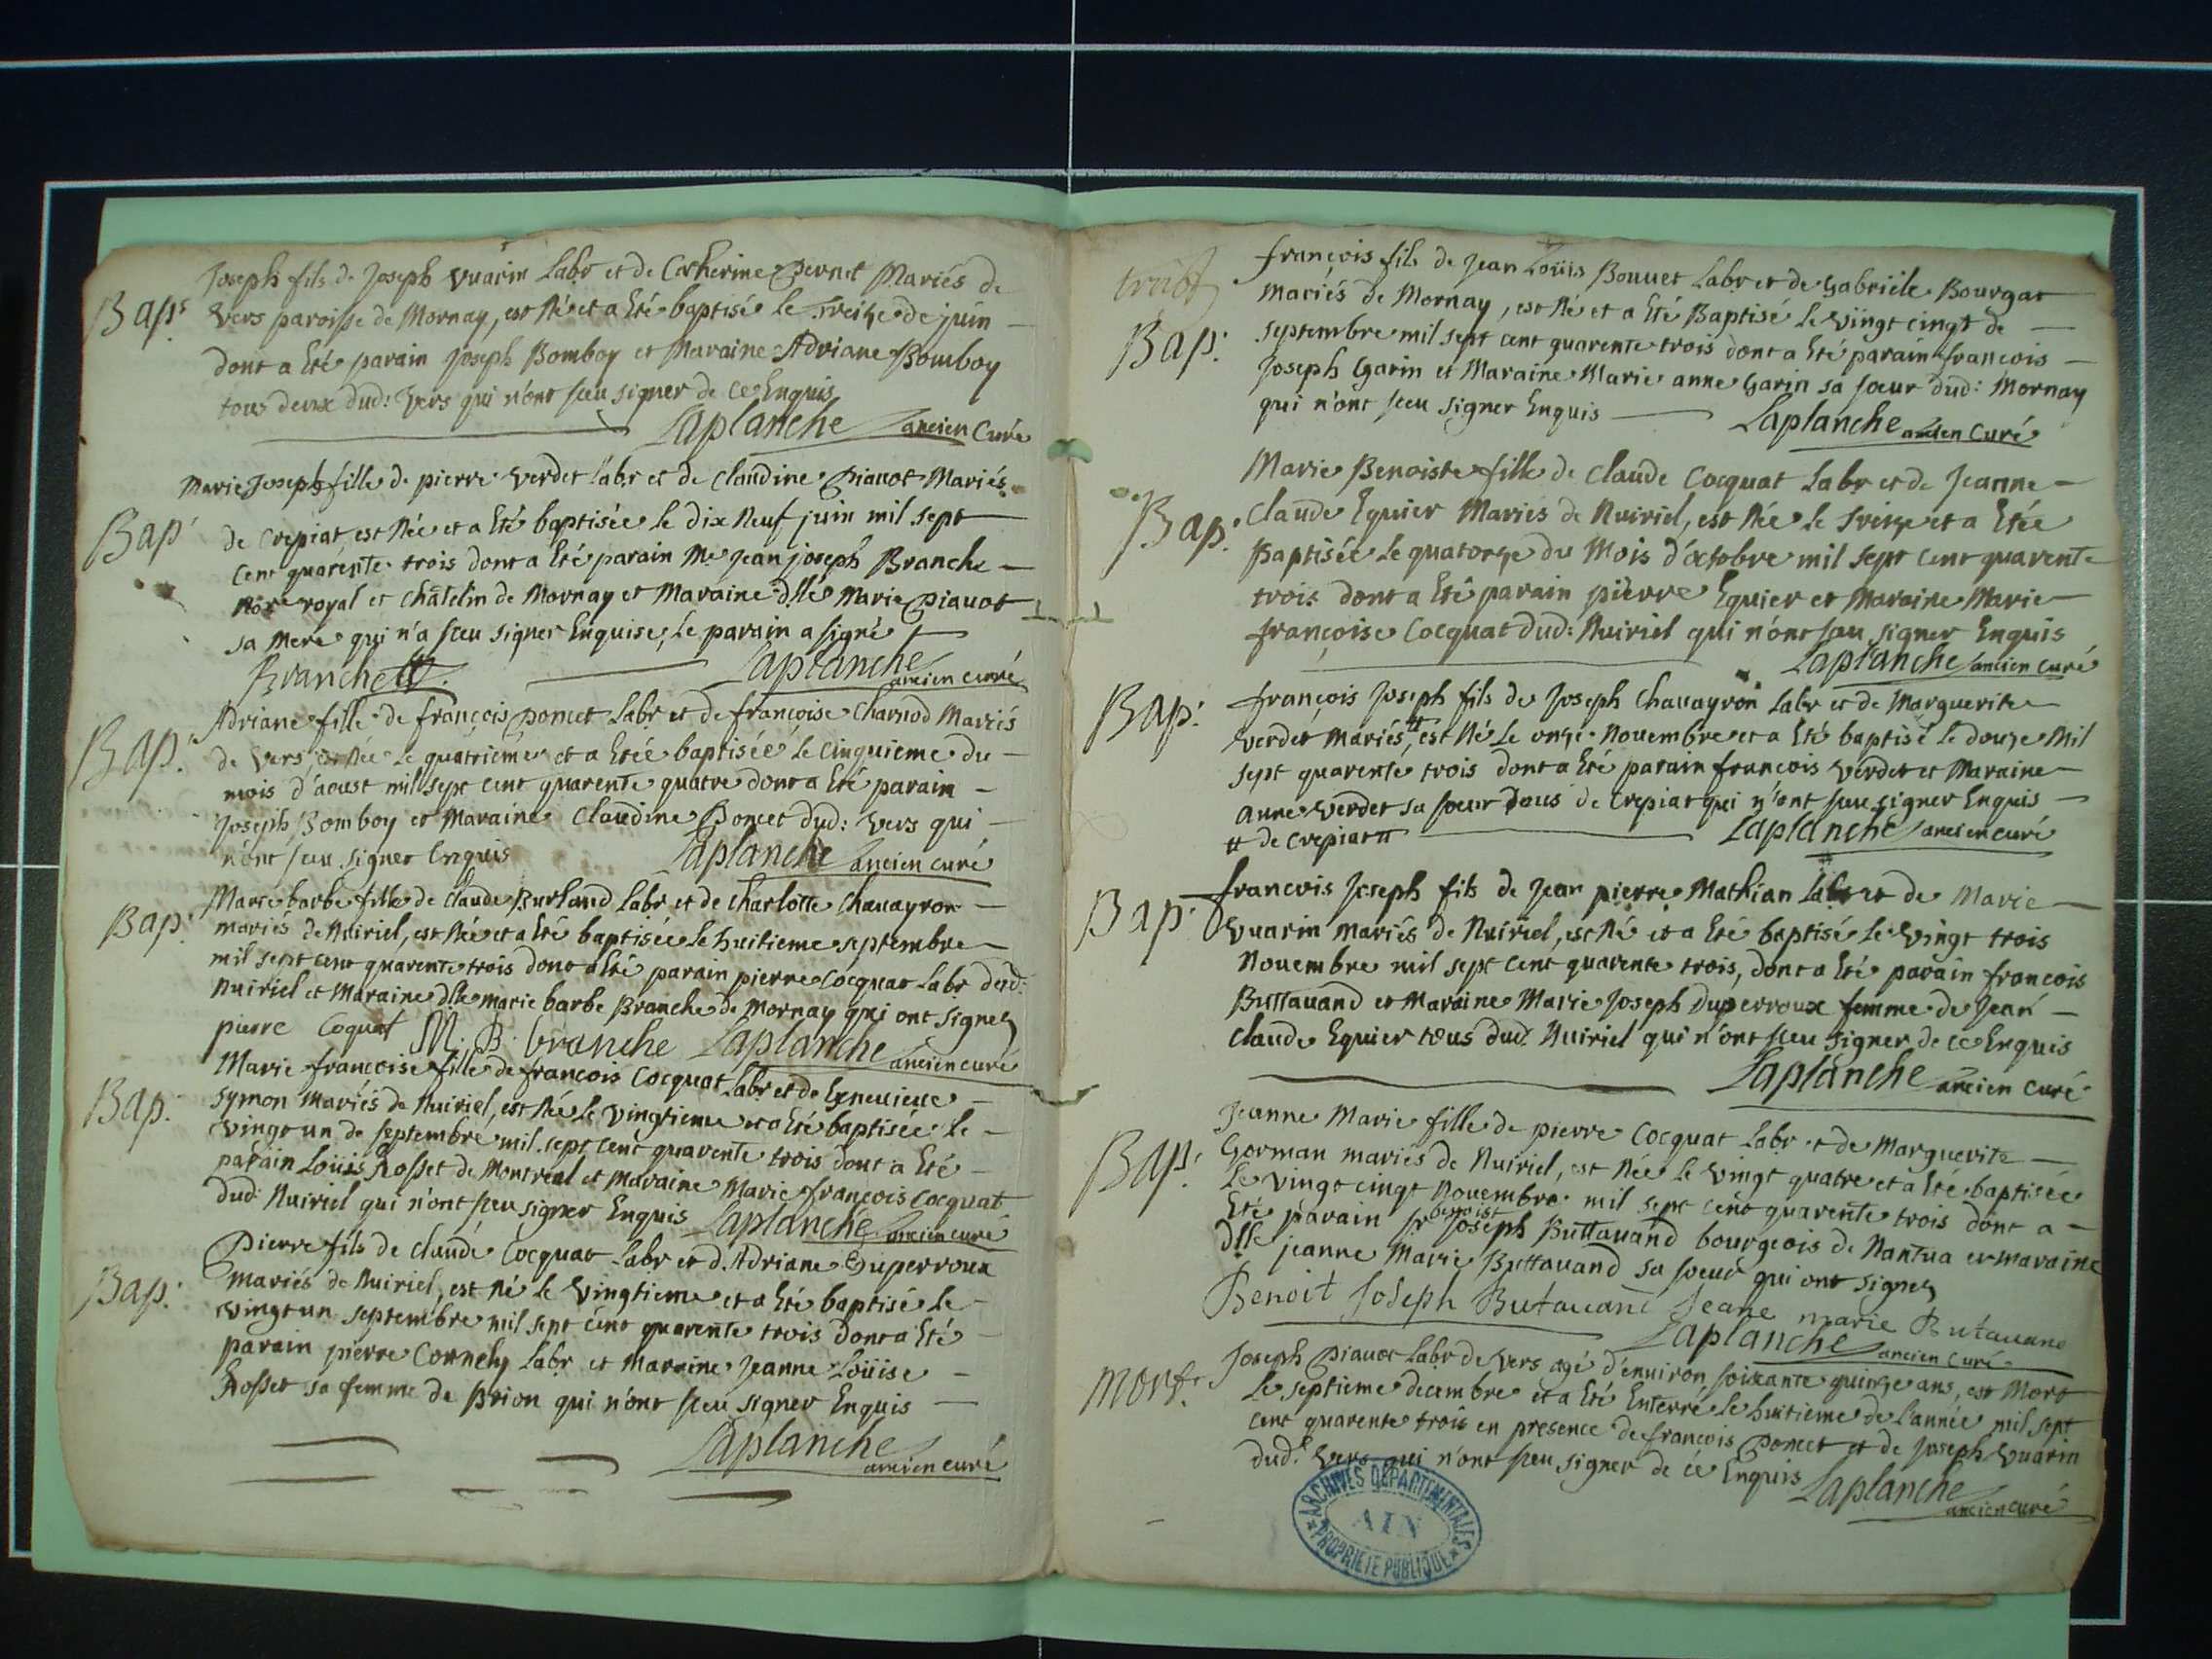 Joseph fils de Joseph Vuarin Labr et de Catherine Pernet Mariés de
Bap:
Vers paroisse de Mornay, est Né et a Eté baptisé le Treize de juin
dont a Eté parain Joseph Bomboy et Maraine Adriane Bomboy
tous deux dud: Vers qui n'ont sceu signer de ce Enquis
Laplanche ancien Curé
Marie Joseph fille de pierre Verdet Labr et de Claudine Piavot Mariés
Bap:
de Crepiat est Née et a Eté baptisée le dix Neuf juin mil sept
cent quarente trois dont a Eté parain Me Jean joseph Branche
Nore royal et châtelin de Mornay et Maraine dlle Marie Piavot
sa Mere qui n'a sceu signer Enquise, le parain a signé
Branche
Laplanche ancien curé
Adriane fille de françois poncet Labr et de françoise Charnod Mariés
Bap:
de Vers, est Née le quatrieme et a Etée baptisée le cinquieme du
mois d'aoust mil sept cent quarente quatre dont a Eté parain
Joseph Bomboy et Maraine Claudine Poncet dud: Vers qui
n'ont sceu signer Enquis
Laplanche ancien curé
Marie barbe fille de Claude Burland Labr et de Charlotte Chavayron
Bap:
mariés de Nuiriel, est Née et a Eté baptisée le huitieme septembre
mil sept cent quarente trois dont a Eté parain pierre Cocquat Labr dud:
Nuiriel et Maraine dlle marie barbe Branche de Mornay qui ont signez
pierre Coquat M. B. branche Laplanche ancien curé
Marie francoise fille de francois Cocquat Labr et de Genevieve
Bap:
Symon Mariés de Nuiriel, est Née le Vingtieme et a Eté baptisée le
Vingt un de septembre mil sept cent quarente trois dont a Eté
parain Loüis Rosset de Montreal et Maraine Marie francois Cocquat
dud: Nuiriel qui n'ont sceu signer Enquis Laplanche ancien curé
Pierre fils de Claude Cocquat Labr et d. Adriane Duperroux
Bap:
Mariés de Nuiriel, est Né le Vingtieme et a Eté baptisé le
Vingt un septembre mil sept cent quarente trois dont a Eté
parain pierre Cornely Labr et Maraine Jeanne Loüise
Rosset sa femme de Brion qui n'ont sceu signer Enquis
Laplanche ancien curé
françois fils de Jean Loüis Bouuet Labr et de Gabriële Bourgat
mariés de Mornay, est Né et a Eté Baptisé le Vingt cinqt de
Bap:
septembre mil sept cent quarente trois dont a Eté parain françois
Joseph Garin et Maraine Marie anne Garin sa soeur dud: Mornay
qui n'ont sceu signer Enquis
Laplanche ancien Curé
Marie Benoiste fille de Claude Cocquat Labr et de Jeanne
Bap:
Claude Eguier Mariés de Nuiriel, est Née le Treize et a Etée
Baptisée le quatorze du Mois d'octobre mil sept cent quarente
trois dont a Eté parain pierre Eguier et Maraine Marie
françoise Cocquat dud: Nuiriel qui n'ont sceu signer Enquis
Laplanche ancien curé
Bap:
françois Joseph fils de Joseph Chavayron Labr et de Marguerite
Verdet Mariés #, est Né le onze Novembre et a Eté baptisé le douze Mil
sept quarente trois dont a Eté parain françois Verdet et Maraine
Anne Verdet sa soeur tous de Crepiat qui n'ont sceu signer Enquis
# de Crepiat #
Laplanche ancien curé
françois Joseph fils de Jean pierre Mathian Labr et de Marie
Bap:
Vuarin Mariés de Nuiriel, est Né et a Eté baptisé le Vingt trois
Novembre mil sept cent quarente trois, dont a Eté parain francois
Buttavand et Maraine Marie Joseph Duperroux femme de Jean
Claude Eguier tous dud: Nuiriel qui n'ont sceu signer de ce Enquis
Laplanche ancien curé
Jeanne Marie fille de pierre Cocquat Labr et de Marguerite
Bap:
Gorman mariés de Nuiriel, est Née le Vingt quatre et a Eté baptisée
Le Vingt cinqt Novembre mil sept cent quarente trois dont a
Eté parain Sr benoist Joseph Buttavand bourgeois de Nantua et maraine
Dlle jeanne Marie Buttavand sa soeur qui ont signez
Benoit Joseph Butavand Jeane marie Butavand
Laplanche ancien curé
Mort.
Joseph Piavot Labr de Vers agé d'environ soixante quinze ans, est Mort
Le septieme decembre et a Eté Enterré le huitieme de l'année mil sept
cent quarente trois en presence de francois Poncet et de Joseph Vuarin
dud: Vers qui n'ont sceu signer de ce Enquis
Laplanche ancien curé
ARCHIVES DÉPARTEMENTALES
AIN
PROPRIÉTÉ PUBLIQUE